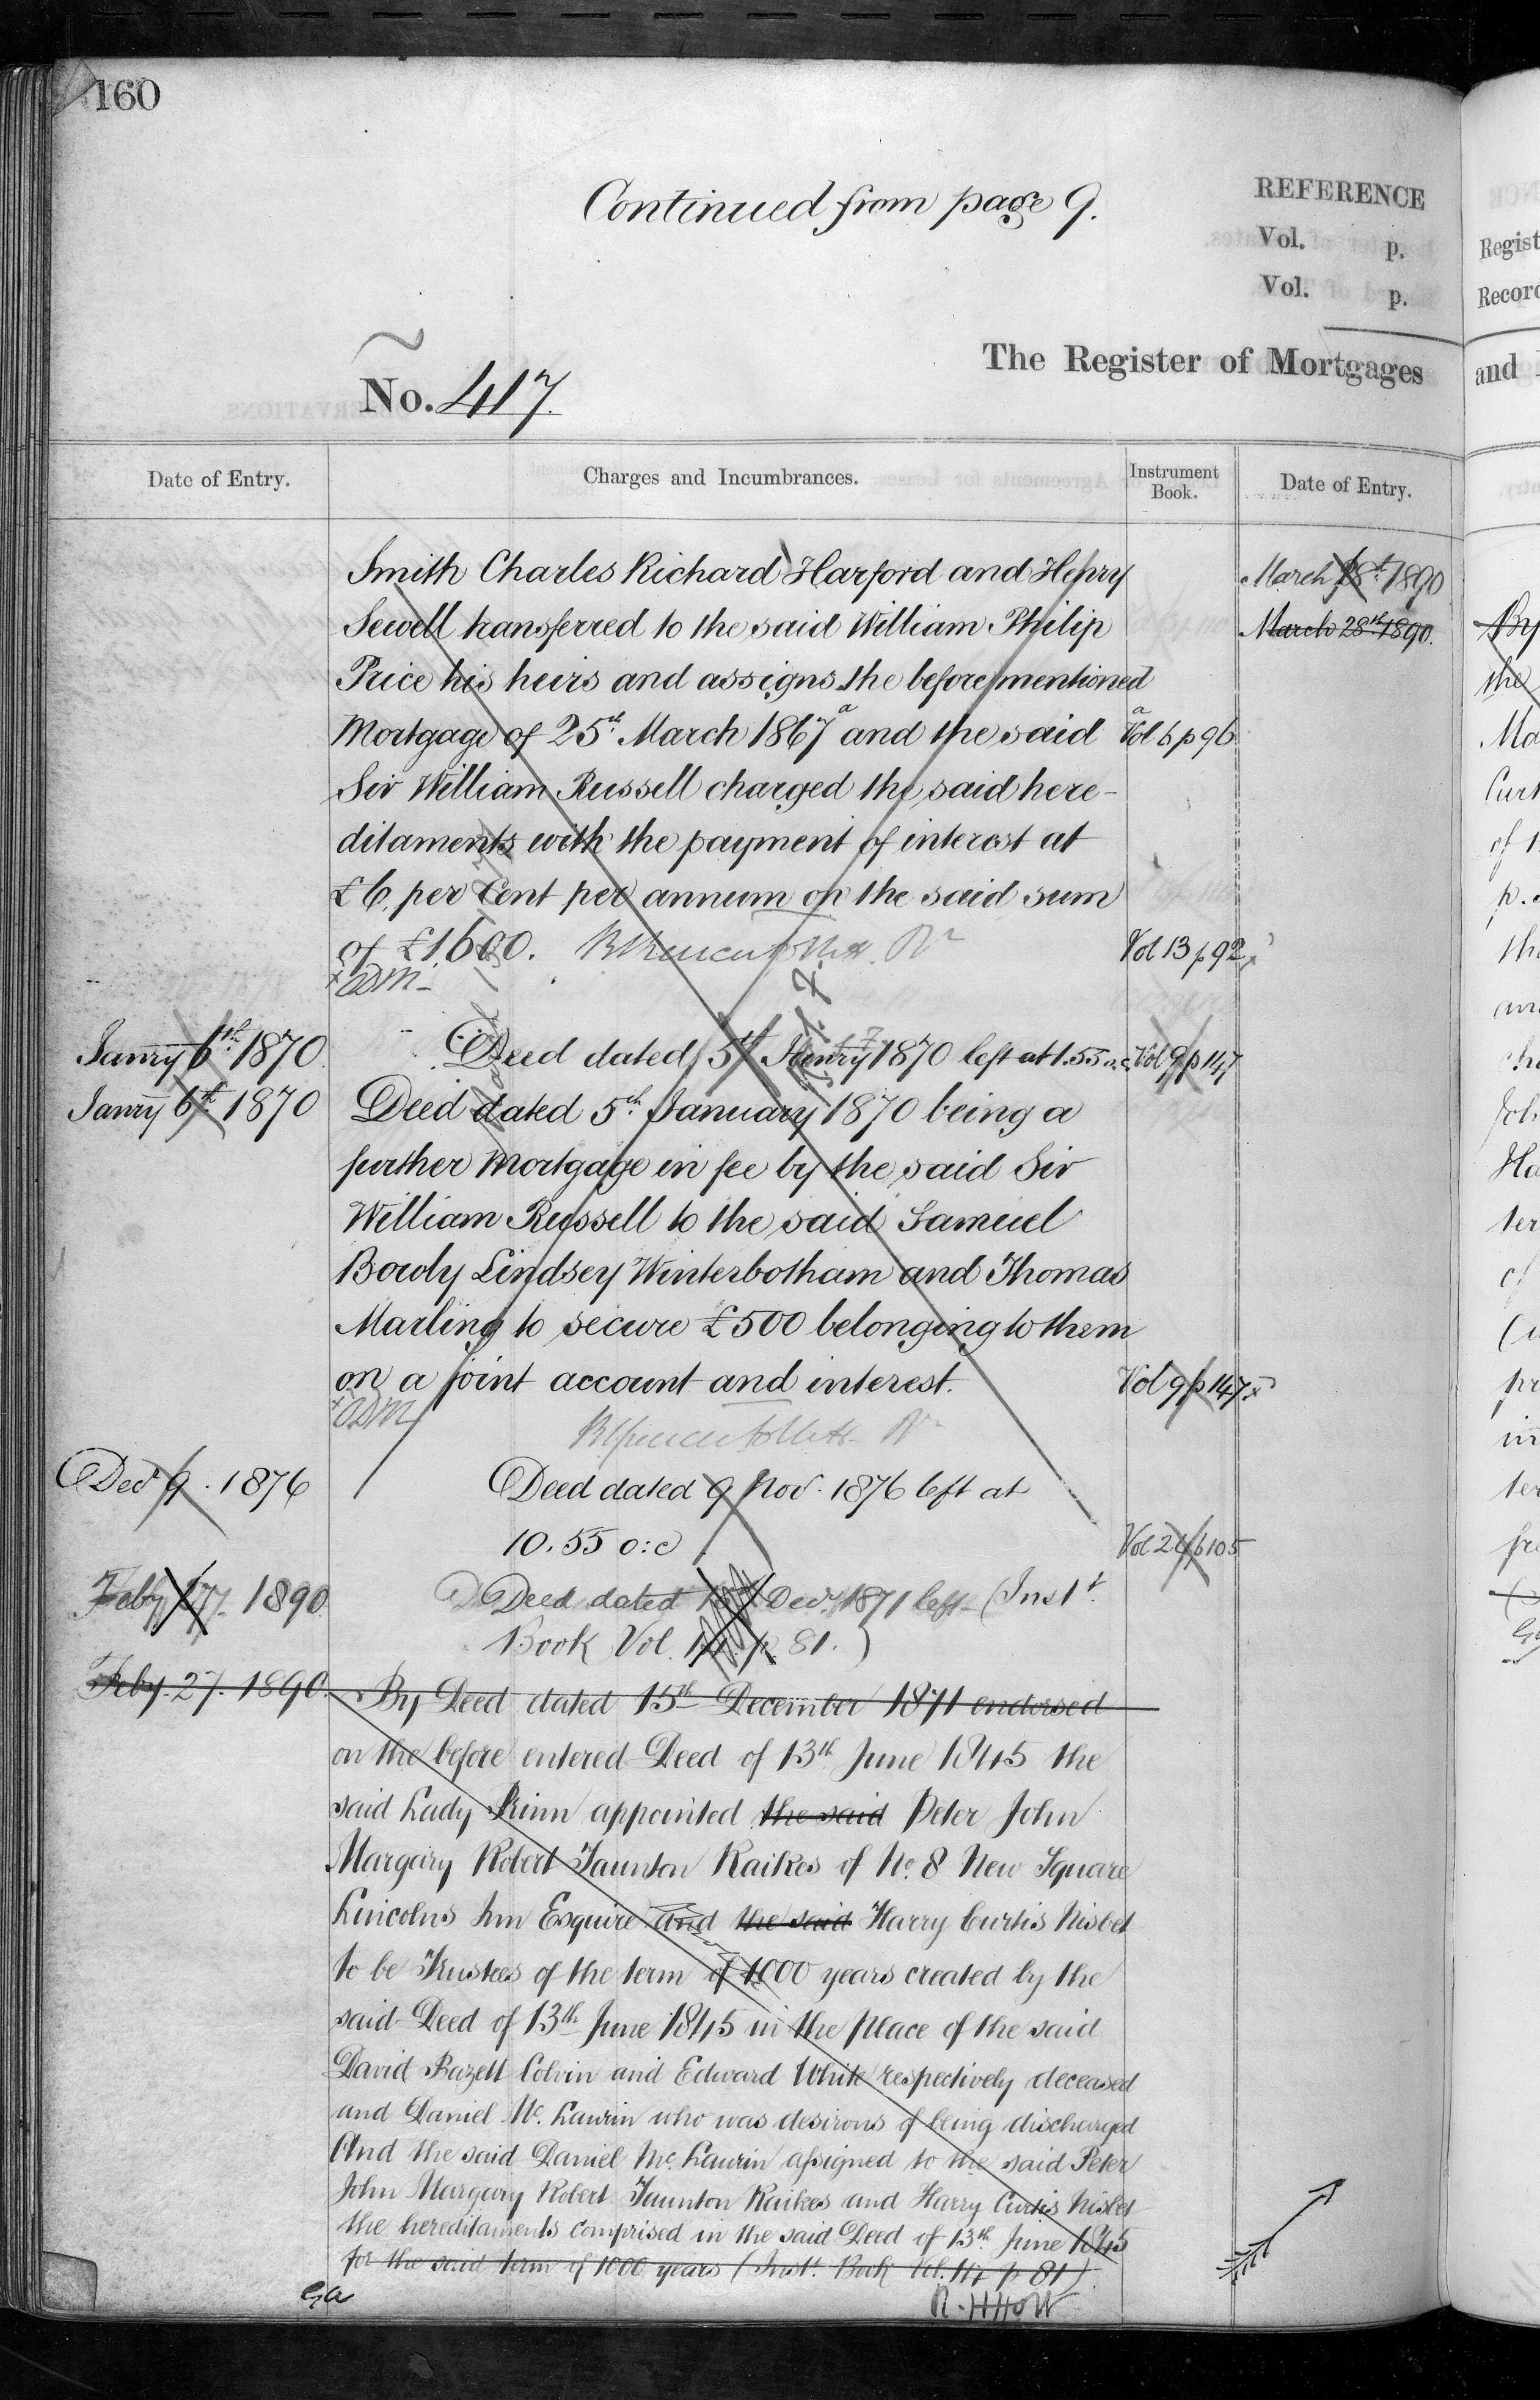 160
Continued from page 9.
REFERENCE
Vol. p.
Vol. p.
No. 417.
The Register of Mortgages
Date of Entry.
Charges and Incumbrances.
Instrument Book.
Date of Entry.
Smith Charles Richard Harford and Henry
March 18th 1890
Sewell transferred to the said William Philip
March 28th 1890.
Price his heirs and assigns the before mentioned
Mortgage of 25th March 1867 a and the said a Vol 6 p 96
Sir William Russell charged the said here-
ditaments with the payment of interest at
£6. per Cent per annum on the said sum
of £1600. Vol 13 p 92 x
x ADM
Janry 6th 1870 Deed dated 5th Janry 1870 left at 1.55 o.c. Vol 9 p 147
Janry 6th 1870 Deed dated 5th January 1870 being a
further Mortgage in fee by the said Sir
William Russell to the said Samuel
Bowly Lindsey Winterbotham and Thomas
Marling to secure £500 belonging to them
on a joint account and interest. Vol 9 p 147 x
x ADM
Decr 9. 1876 Deed dated 9 Nov. 1876 left at
10.55 o:c Vol 26 p 105
Feby 27. 1890. Deed dated 15th Decr. 1871 left (Inst.
Book Vol. 14. p. 81.)
Feby. 27. 1890. By Deed dated 15th December 1871 endorsed
on the before entered Deed of 13th June 1845 the
said Lady Prinn appointed the said Peter John
Margary Robert Taunton Raikes of No. 8 New Square
Lincolns Inn Esquire and the said Harry Curtis Nisbet
to be Trustees of the term of 1000 years created by the
said Deed of 13th June 1845 in the place of the said
David Bazett Colvin and Edward White respectively deceased
and Daniel Mc. Laurin who was desirous of being discharged
And the said Daniel Mc. Laurin assigned to the said Peter
John Margary Robert Taunton Raikes and Harry Curtis Nisbet
the hereditaments comprised in the said Deed of 13th June 1845
for the said term of 1000 years (Inst. Book Vol. 14 p 81).
GA
R. H Holt